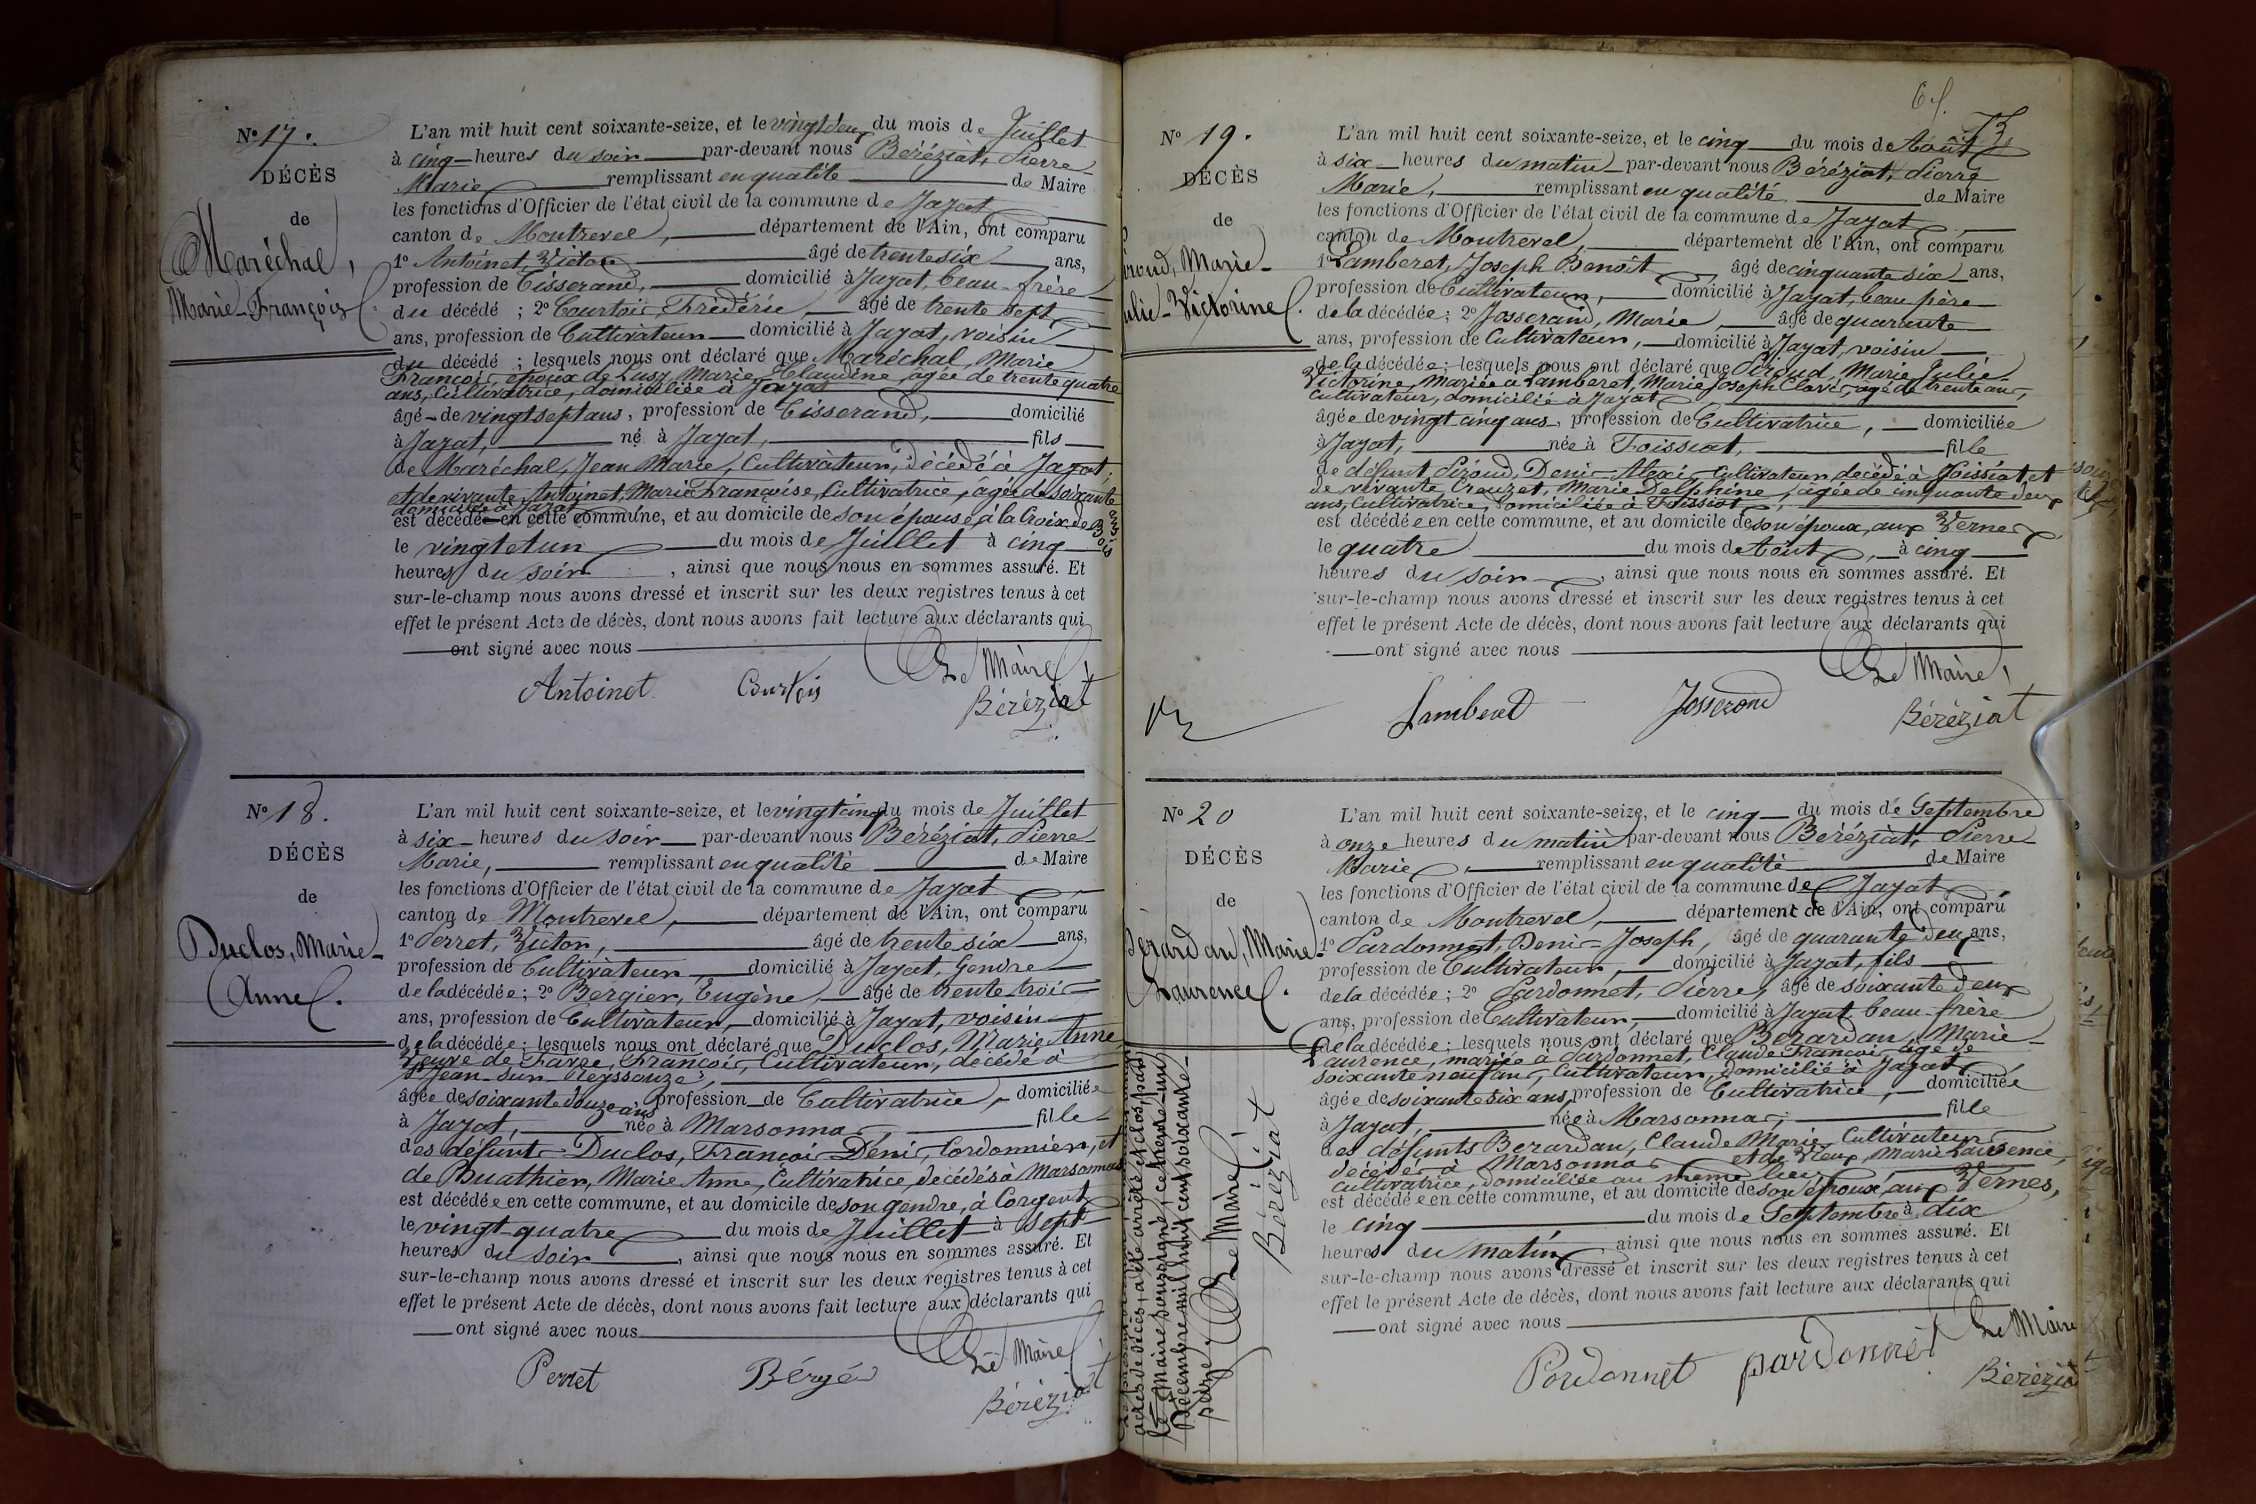 Nº 17.
DÉCÈS
de
Maréchal,
Marie-François
L'an mil huit cent soixante-seize, et le vingt deux du mois de Juillet
à cinq heures du soir par-devant nous Béréziat, Pierre
Marie remplissant en qualité de Maire
les fonctions d'Officier de l'état civil de la commune de Jayat
canton de Montrevel, département de l'Ain, ont comparu
1º Antoinet, Victor âgé de trente six ans,
profession de Tisserand, domicilié à Jayat, beau-frère
du décédé ; 2º Courtois, Frédéric, âgé de trente sept
ans, profession de Cultivateur domicilié à Jayat, voisin
du décédé ; lesquels nous ont déclaré que Maréchal, Marie
François, époux de Lusy, Marie Claudine, âgée de trente quatre
ans, Cultivatrice, domiciliée à Jayat
âgé de vingt sept ans, profession de Tisserand, domicilié
à Jayat, né à Jayat, fils
de Maréchal, Jean Marie, Cultivateur, décédé à Jayat,
et de vivante Antoinet, Marie Françoise, Cultivatrice, âgée de soixante ans
domiciliée à Jayat
est décédé en cette commune, et au domicile de son épouse, à la Croix de Bois
le vingt et un du mois de Juillet à cinq
heures du soir, ainsi que nous nous en sommes assuré. Et
sur-le-champ nous avons dressé et inscrit sur les deux registres tenus à cet
effet le présent Acte de décès, dont nous avons fait lecture aux déclarants qui
ont signé avec nous
Le Maire,
Antoinet Courtois Béréziat
Nº 18.
DÉCÈS
de
Duclos, Marie-
Anne.
L'an mil huit cent soixante-seize, et le vingt cinq du mois de Juillet
à six heures du soir par-devant nous Béréziat, Pierre
Marie, remplissant en qualité de Maire
les fonctions d'Officier de l'état civil de la commune de Jayat
canton de Montrevel, département de l'Ain, ont comparu
1º Perret, Victor, âgé de trente six ans,
profession de Cultivateur domicilié à Jayat, Gendre
de la décédée ; 2º Bergier, Eugène, âgé de trente trois
ans, profession de Cultivateur, domicilié à Jayat, voisin
de la décédée ; lesquels nous ont déclaré que Duclos, Marie Anne
Veuve de Favre, François, Cultivateur, décédé à
St Jean-sur-Reyssouze,
âgée de soixante douze ans profession de Cultivatrice, domiciliée
à Jayat, née à Marsonnas, fille
des défunts Duclos, François Denis, Cordonnier, et
de Buathier, Marie Anne, Cultivatrice, décédés à Marsonnas
est décédée en cette commune, et au domicile de son gendre, à Corgent
le vingt quatre du mois de Juillet à sept
heures du soir, ainsi que nous nous en sommes assuré. Et
sur-le-champ nous avons dressé et inscrit sur les deux registres tenus à cet
effet le présent Acte de décès, dont nous avons fait lecture aux déclarants qui
ont signé avec nous
Le Maire
Perret Bérgér Béréziat
73
Nº 19.
DÉCÈS
de
roud, Marie-
ulie-Victorine.
L'an mil huit cent soixante-seize, et le cinq du mois de Août
à six heures du matin par-devant nous Béréziat, Pierre
Marie, remplissant en qualité de Maire
les fonctions d'Officier de l'état civil de la commune de Jayat,
canton de Montrevel, département de l'Ain, ont comparu
1º Lamberet, Joseph Benoit âgé de cinquante six ans,
profession de Cultivateur, domicilié à Jayat, beau père
de la décédée ; 2º Josserand, Marie, âgé de quarante
ans, profession de Cultivateur, domicilié à Jayat, voisin
de la décédée ; lesquels nous ont déclaré que Piroud, Marie Julie
Victorine, Mariée à Lamberet, Marie Joseph Claude, âgé de trente ans,
Cultivateur, domicilié à Jayat
âgée de vingt cinq ans, profession de Cultivatrice, domiciliée
à Jayat, née à Foissiat, fille
de défunt Piroud, Denis-Alexis, Cultivateur décédé à Foissiat et
de vivante Creuzet, Marie Delphine, âgée de cinquante deux
ans, Cultivatrice, domiciliée à Foissiat,
est décédée en cette commune, et au domicile de son époux, aux Vernes
le quatre du mois de Août, à cinq
heures du soir, ainsi que nous nous en sommes assuré. Et
sur-le-champ nous avons dressé et inscrit sur les deux registres tenus à cet
effet le présent Acte de décès, dont nous avons fait lecture aux déclarants qui
ont signé avec nous
Le Maire,
Lamberet Josserand Béréziat
Nº 20
DÉCÈS
de
Bérardan, Marie-
Laurence.
L'an mil huit cent soixante-seize, et le cinq du mois de Septembre
à onze heures du matin par-devant nous Béréziat, Pierre
Marie, remplissant en qualité de Maire
les fonctions d'Officier de l'état civil de la commune de Jayat
canton de Montrevel, département de l'Ain, ont comparu
1º Pardonnet, Denis-Joseph, âgé de quarante deux ans,
profession de Cultivateur, domicilié à Jayat, fils
de la décédée ; 2º Pardonnet, Pierre, âgé de soixante deux
ans, profession de Cultivateur, domicilié à Jayat beau-frère
de la décédée ; lesquels nous ont déclaré que Bérardan, Marie-
Laurence, mariée à Pardonnet, Claude François, âgé de
soixante neuf ans, Cultivateur, domicilié à Jayat
âgée de soixante six ans, profession de Cultivatrice, domiciliée
à Jayat, née à Marsonnas, fille
des défunts Berardan, Claude Marie, Cultivateur
décédé à Marsonnas et de Vieux, Marie Laurence,
Cultivatrice, domiciliée au même lieu
est décédée en cette commune, et au domicile de son époux, aux Vernes,
le cinq du mois de Septembre à dix
heures du matin, ainsi que nous nous en sommes assuré. Et
sur-le-champ nous avons dressé et inscrit sur les deux registres tenus à cet
effet le présent Acte de décès, dont nous avons fait lecture aux déclarants qui
ont signé avec nous
Le Maire
Pardonnet pardonnet Béréziat
actes de décès, a été arrêté et clos par
le Maire soussigné, ce trente-un
Décembre mil huit cent soixante-
seize. Le Maire,
Béréziat